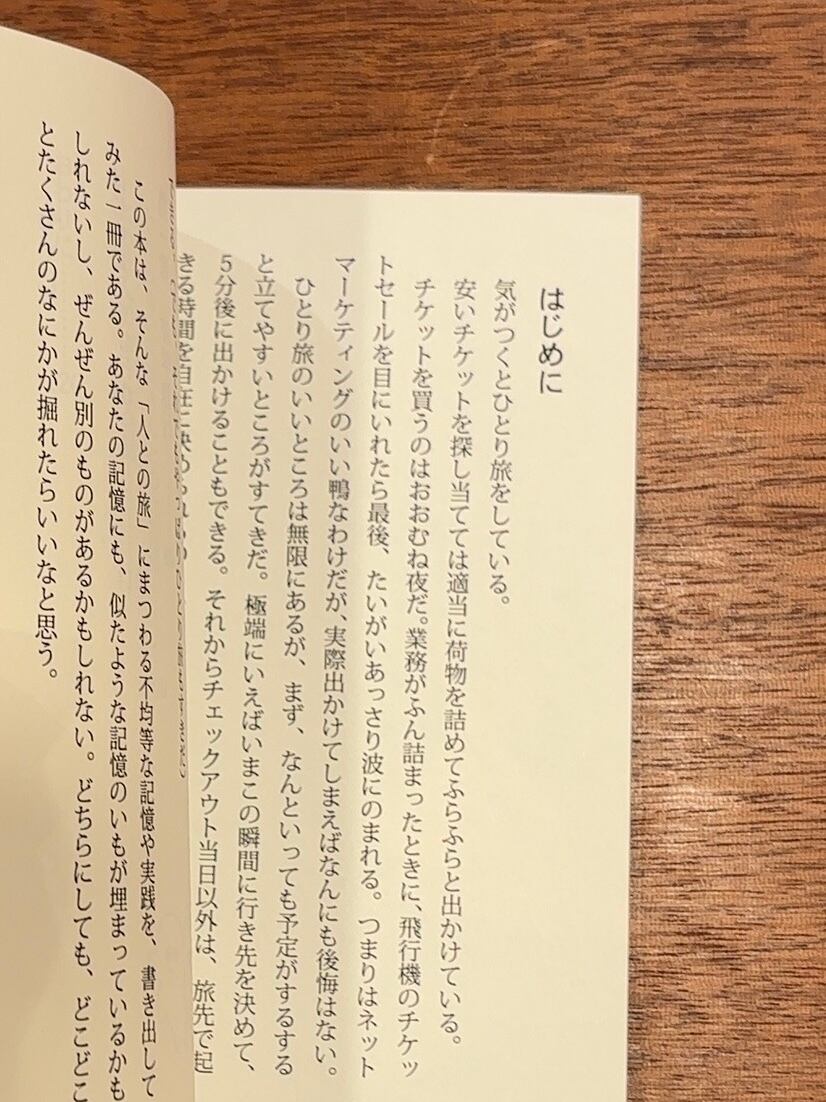 はじめに
気がつくとひとり旅をしている。
安いチケットを探し当てては適当に荷物を詰めてふらふらと出かけている。
チケットを買うのはおおむね夜だ。業務がふん詰まったときに、飛行機のチケッ
トセールを目にいれたら最後、たいがいあっさり波にのまれる。つまりはネット
マーケティングのいい鴨なわけだが、実際出かけてしまえばなんにも後悔はない。
ひとり旅のいいところは無限にあるが、まず、なんといっても予定がするする
と立てやすいところがすてきだ。極端にいえばいまこの瞬間に行き先を決めて、
5分後に出かけることもできる。それからチェックアウト当日以外は、旅先で起
きる時間を自在に決められ
この本は、そんな「人との旅」にまつわる不均等な記憶や実践を、書き出して
みた一冊である。あなたの記憶にも、似たような記憶のいもが埋まっているかも
しれないし、ぜんぜん別のものがあるかもしれない。どちらにしても、どこどこ
とたくさんのなにかが掘れたらいいなと思う。